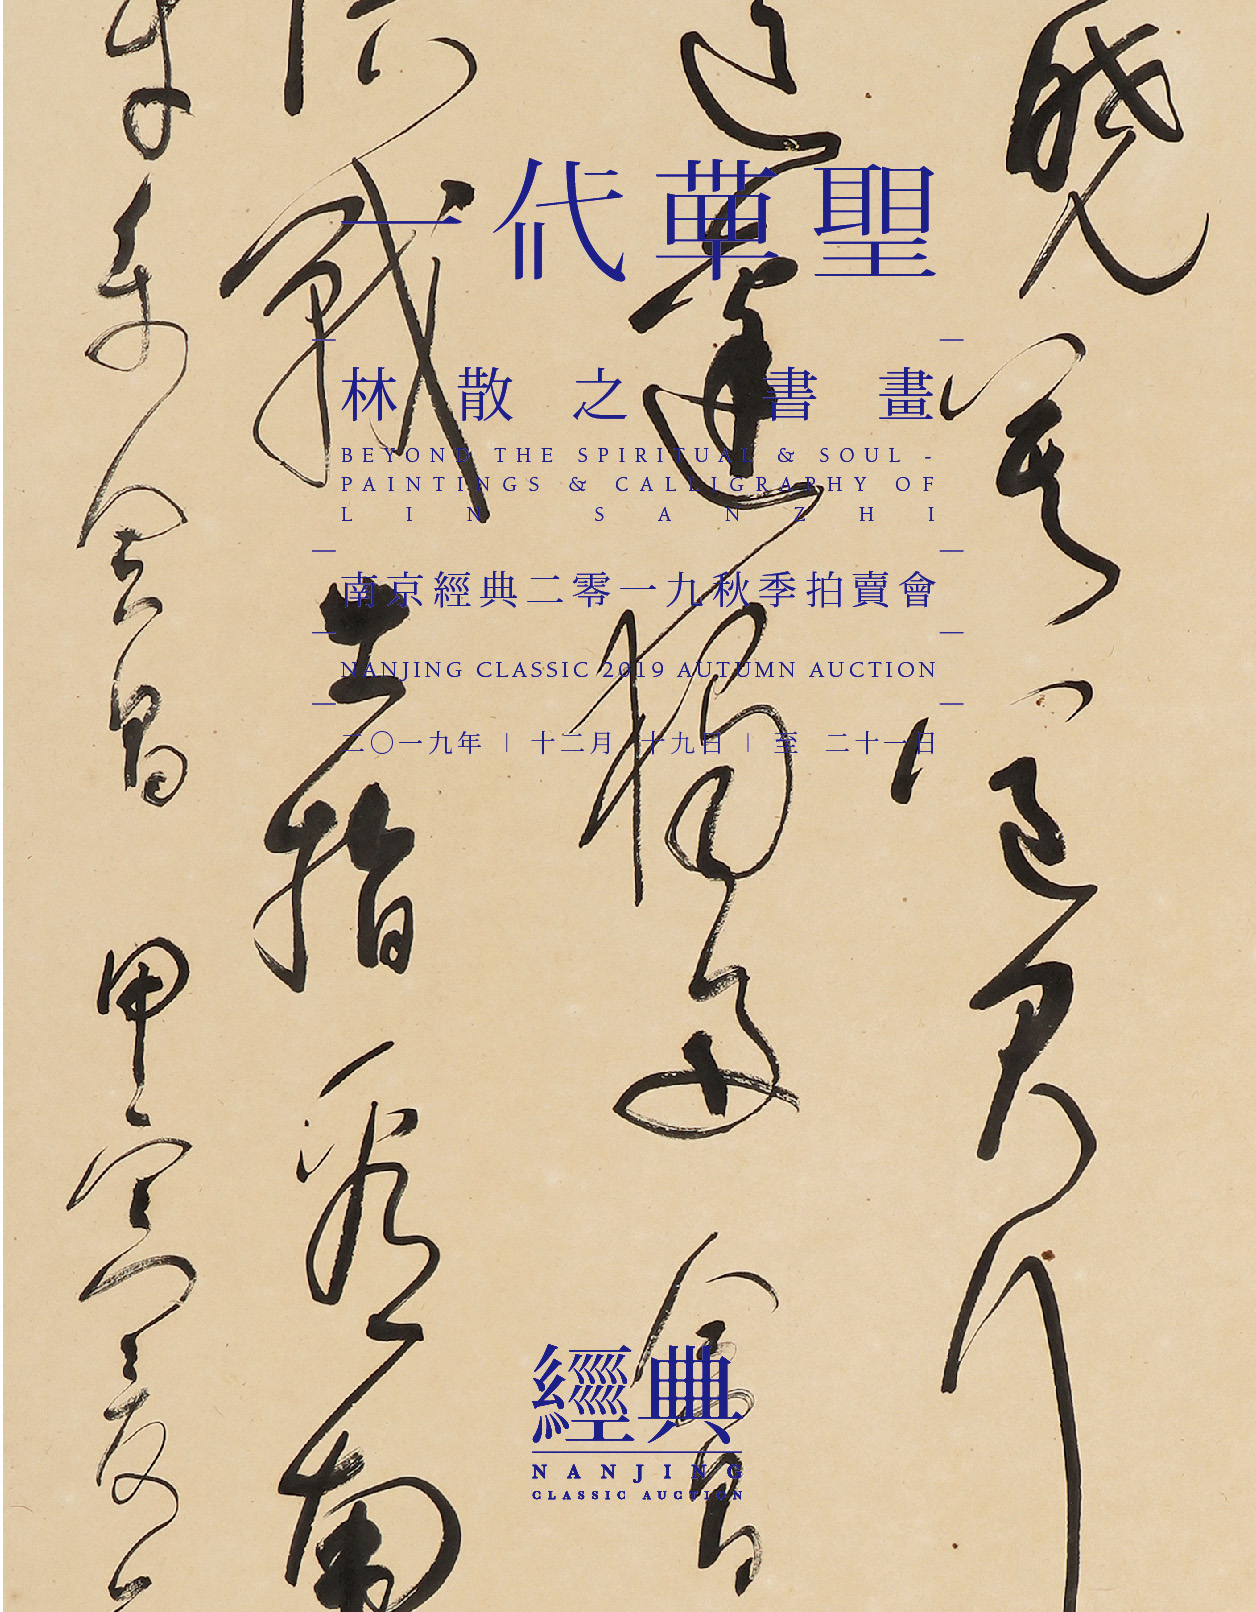 一代草聖
林散之 書畫
BEYOND THE SPIRITUAL & SOUL -
PAINTINGS & CALLIGRAPHY OF
LIN SANZHI
南京經典二零一九秋季拍賣會
NANJING CLASSIC 2019 AUTUMN AUCTION
二〇一九年 | 十二月 十九日 | 至 二十一日
曉莫道君行
這邊獨好會昌
戰士指看南
平樂會昌 甲寅
經典
NANJING
CLASSIC AUCTION